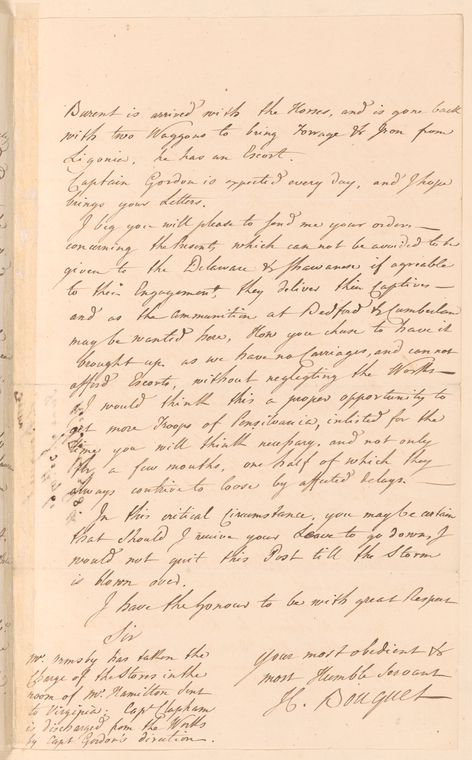 Burent is arrived with the Horses, and is gone back
with two Waggons to bring Forrage & Iron from
Ligonier. he has an Escort.
Captain Gordon is expected every day, and I hope
brings your Letters.
I beg you will please to send me your orders
concerning the Presents which can not be avoided to be
given to the Delaware & Shawanese if agreable
to their Engagement, they deliver their Captives
and as the ammunition at Bedford & Cumberland
may be wanted here, How you chuse to have it
brought up. as we have no Carriages, and can not
afford Escorts, without neglecting the Works
I would think this a proper opportunity to
get more Troops of Pensilvania, inlisted for the
time you will think necessary, and not only
for a few months, one half of which they
always contrive to loose by affected delays.
In this critical Circumstance, you may be certain
that should I receive your Leave to go down, I
would not quit this Post till the Storm
is blown over.
I have the honour to be with great Respect
Sir
your most obedient &
most Humble Servant
H. Bouquet
Mr. Ormsby has taken the
Charge of the Stores in the
room of Mr. Hamilton sent
to Virginia; Capt Clapham
is discharged from the Works
by Capt Gordon's direction.